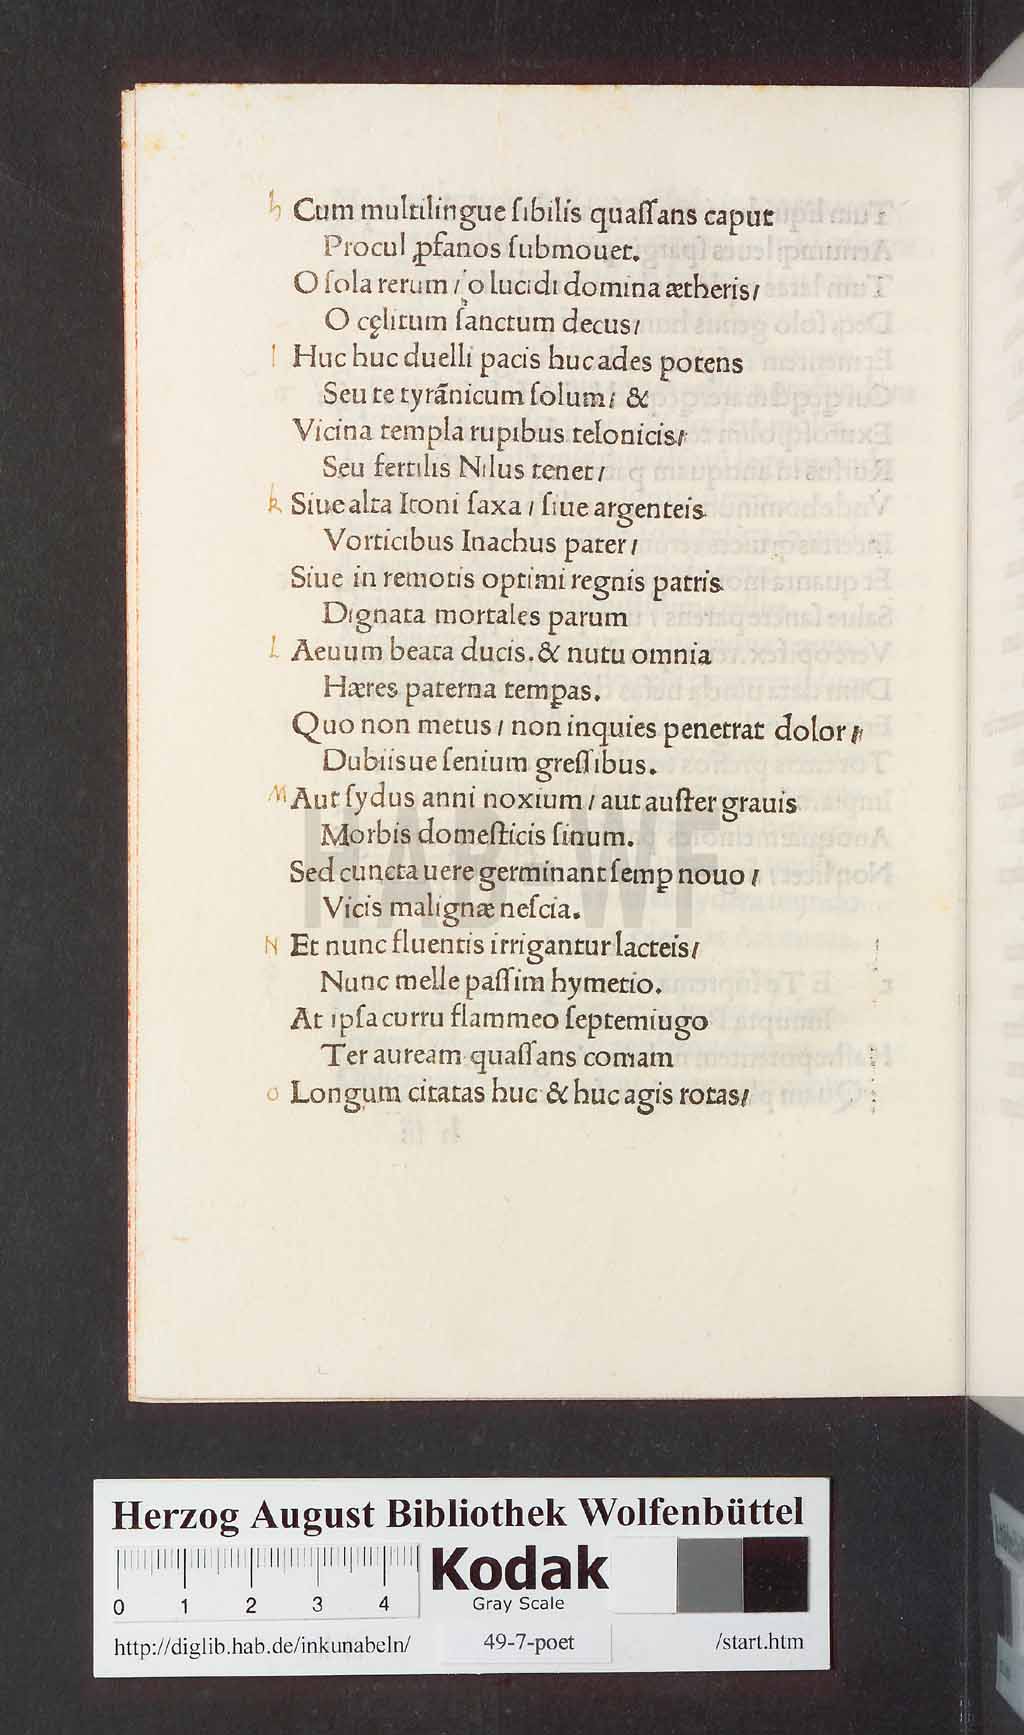 h Cum multilingue ſibilis quaſſans caput
Procul ꝓfanos ſubmouet.
O ſola rerum / o lucidi domina ætheris/
O cęlitum ſanctum decus/
I Huc huc duelli pacis huc ades potens
Seu te tyrãnicum ſolum/ &
Vicina templa rupibus telonicis/
Seu fertilis Nilus tenet/
k Siue alta Itoni ſaxa / ſiue argenteis
Vorticibus Inachus pater/
Siue in remotis optimi regnis patris
Dignata mortales parum
L Aeuum beata ducis. & nutu omnia
Hæres paterna tempas.
Quo non metus / non inquies penetrat dolor /
Dubiisue ſenium greſſibus.
M Aut ſydus anni noxium / aut auſter grauis
Morbis domeſticis ſinum.
Sed cuncta uere germinant ſemꝑ nouo /
Vicis malignæ neſcia.
N Et nunc fluentis irrigantur lacteis/
Nunc melle paſſim hymetio.
At ipſa curru flammeo ſeptemiugo
Ter auream quaſſans comam
O Longum citatas huc & huc agis rotas/
HAB-WF
Herzog August Bibliothek Wolfenbüttel
0 1 2 3 4
Kodak
Gray Scale
http://diglib.hab.de/inkunabeln/ 49-7-poet /start.htm